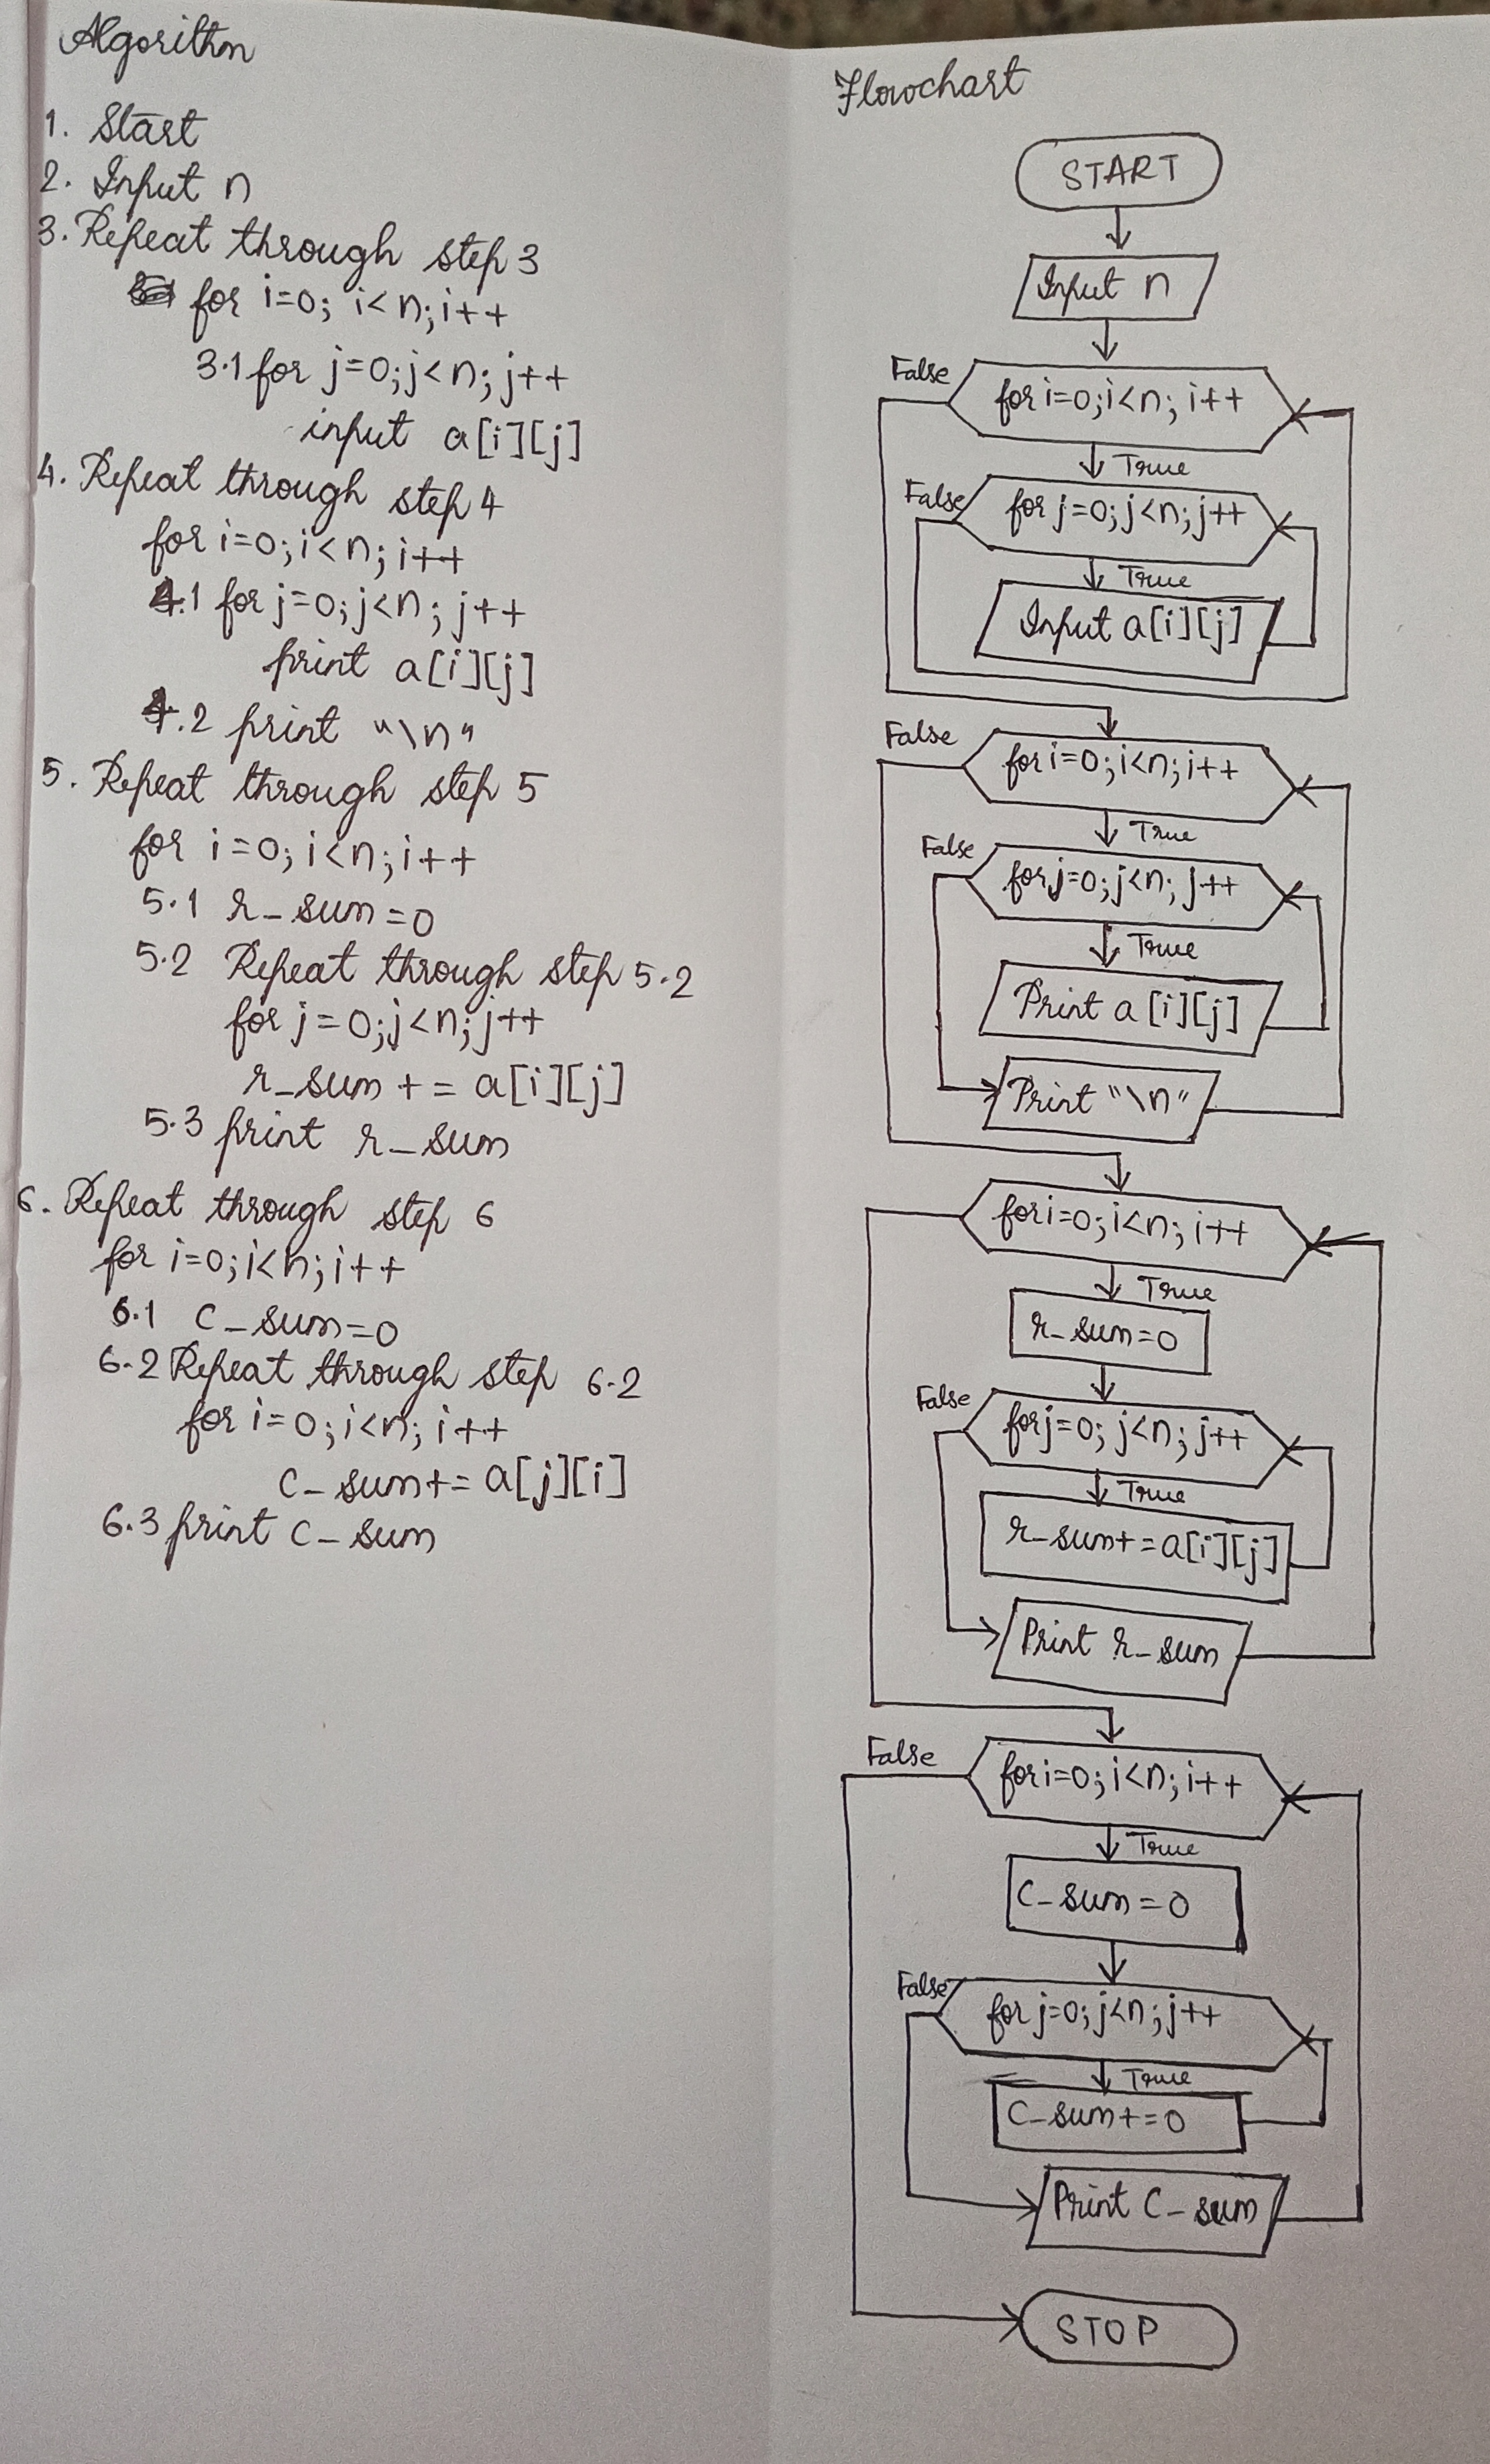 Algorithm
1. Start
2. Input n
3. Repeat through step 3
for i=0; i<n; i++
3.1 for j=0; j<n; j++
input a[i][j]
4. Repeat through step 4
for i=0; i<n; i++
4.1 for j=0; j<n; j++
print a[i][j]
4.2 print "\n"
5. Repeat through step 5
for i=0; i<n; i++
5.1 r_sum=0
5.2 Repeat through step 5.2
for j=0; j<n; j++
r_sum += a[i][j]
5.3 print r_sum
6. Repeat through step 6
for i=0; i<n; i++
6.1 c_sum=0
6.2 Repeat through step 6.2
for i=0; i<n; i++
c_sum+= a[j][i]
6.3 print c_sum
Flowchart
START
Input n
False
for i=0; i<n; i++
True
False
for j=0; j<n; j++
True
Input a[i][j]
False
for i=0; i<n; i++
True
False
for j=0; j<n; j++
True
Print a[i][j]
Print "\n"
for i=0; i<n; i++
True
r_sum=0
False
for j=0; j<n; j++
True
r_sum+=a[i][j]
Print r_sum
False
for i=0; i<n; i++
True
c_sum=0
False
for j=0; j<n; j++
True
c_sum+=0
Print c_sum
STOP